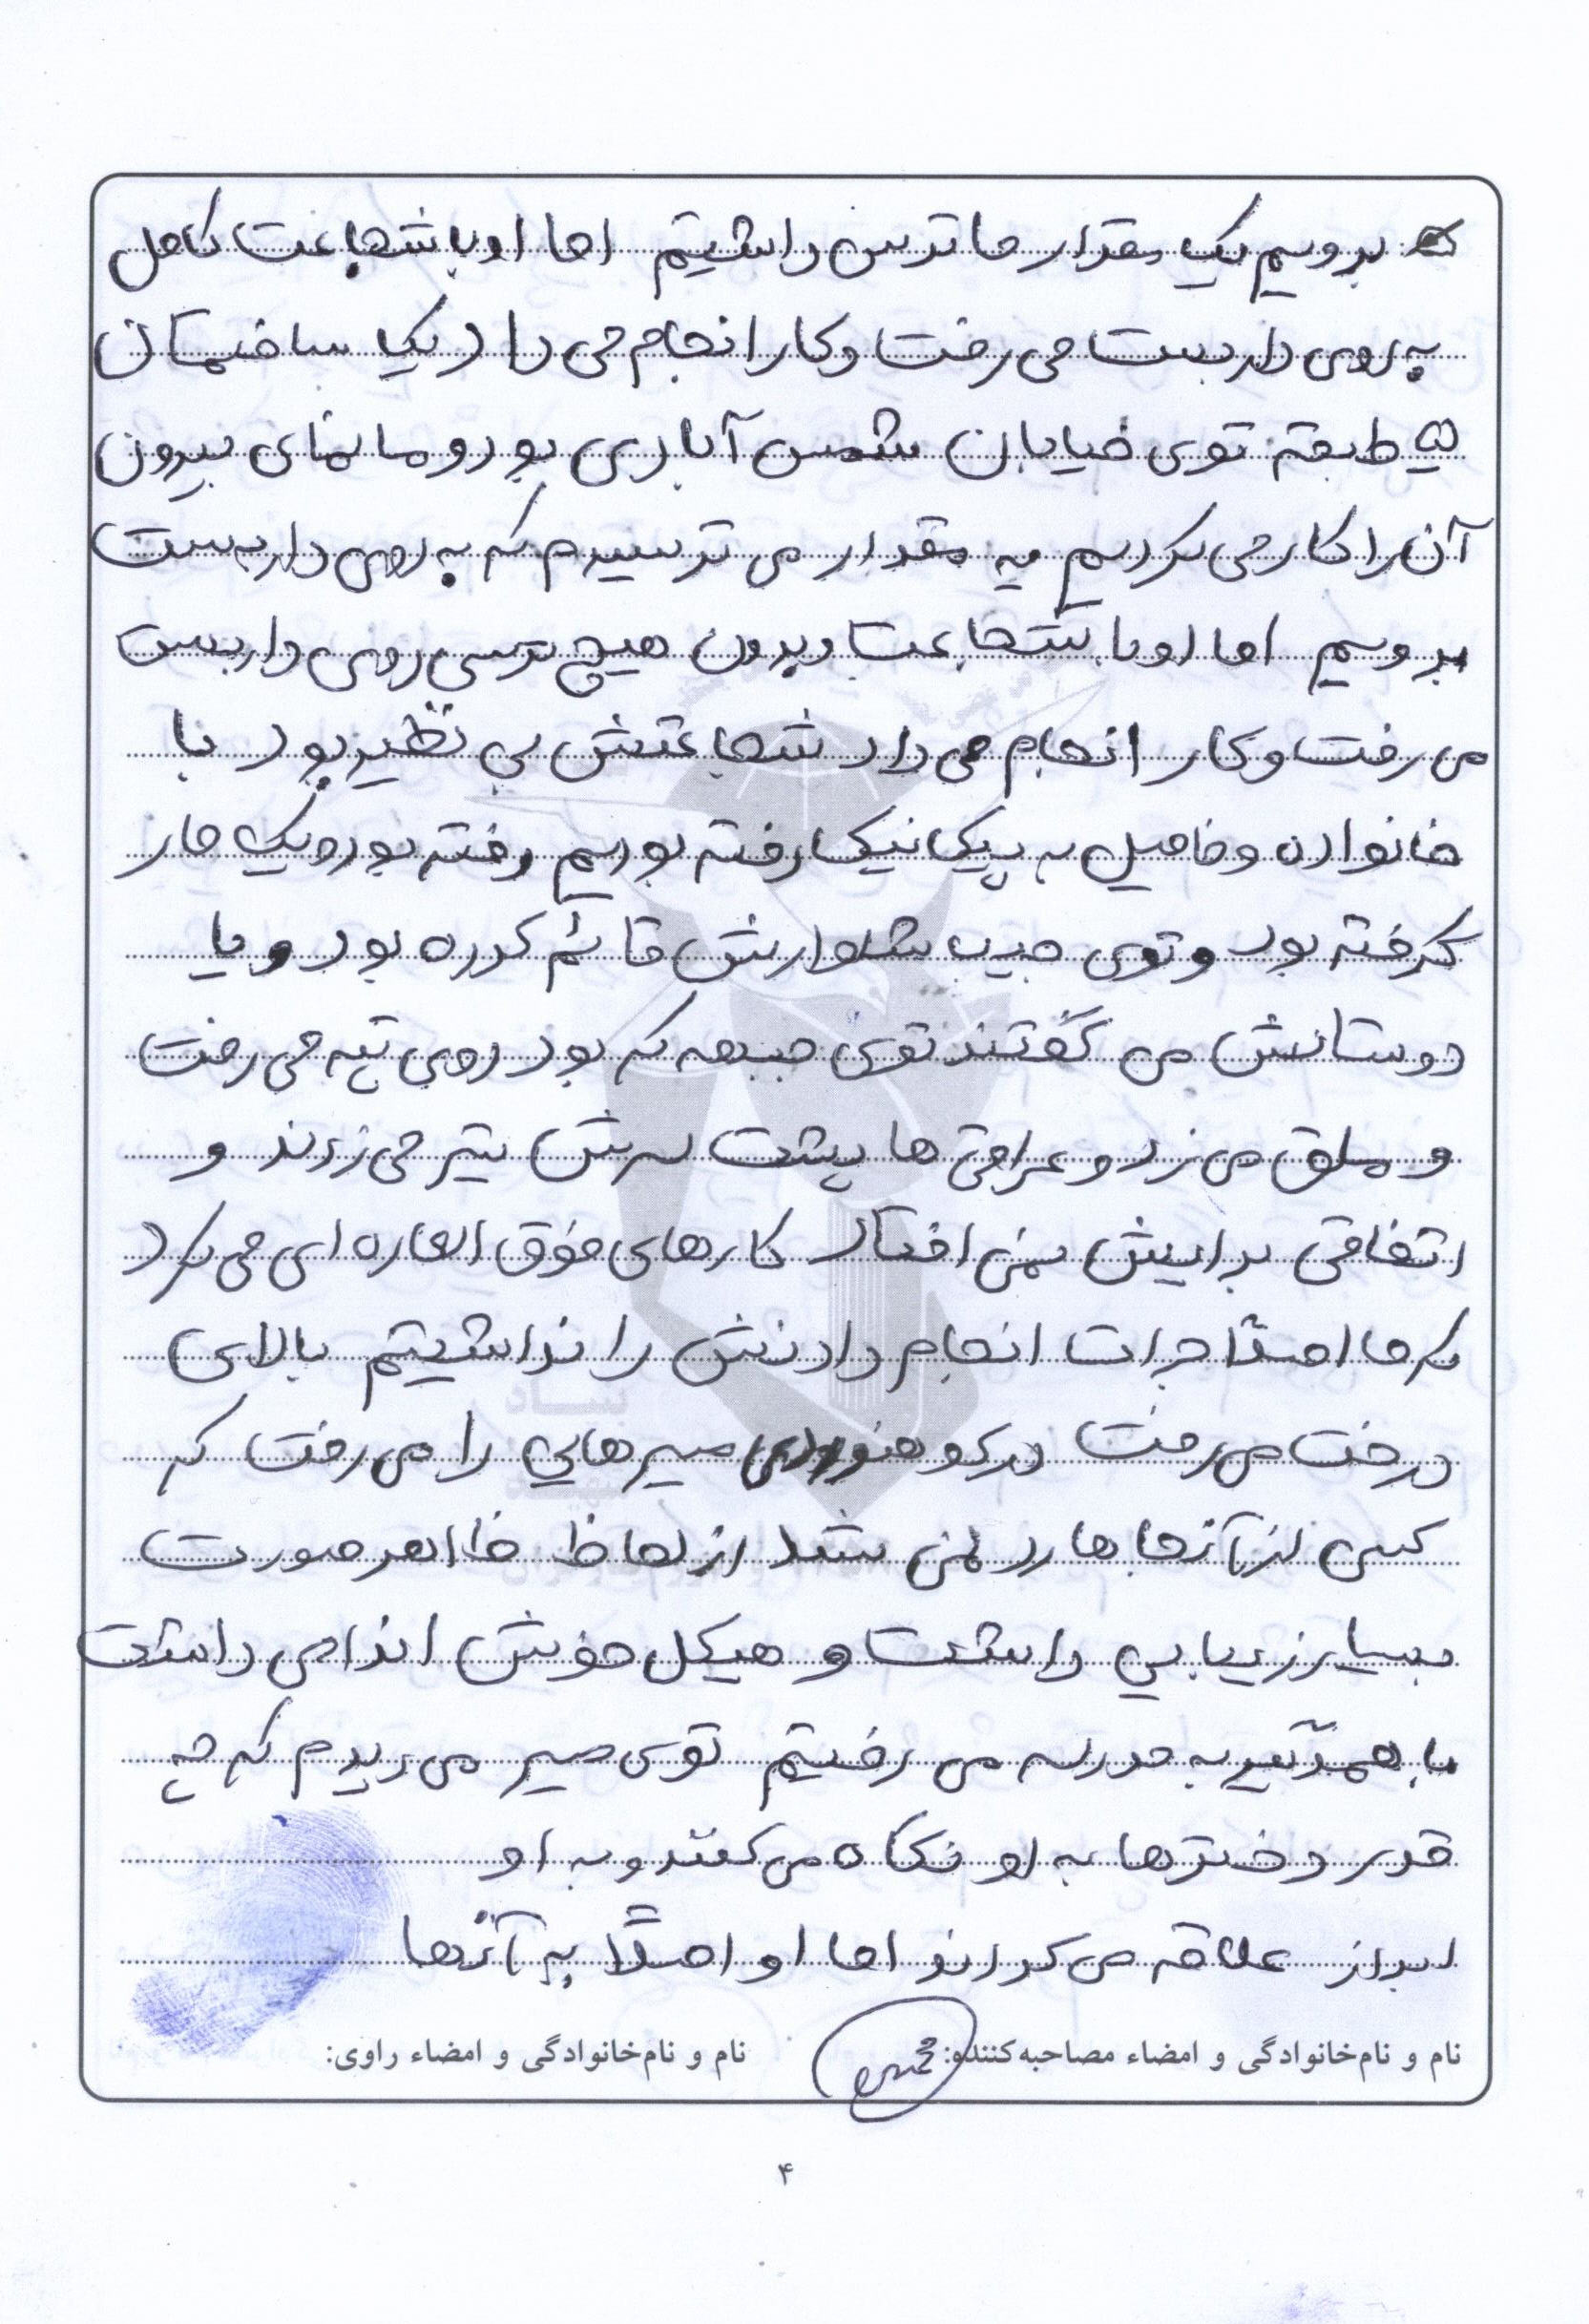 برویم یک مقدار ما ترس داشتیم اما او با شجاعت کامل
به روی داربست می رفت و کار انجام می داد یک ساختمان
۵ طبقه توی خیابان شمس آبادی بود و ما نمای بیرون
آن را کار می کردیم یه مقدار می ترسیدم که به روی داربست
برویم اما او با شجاعت و بدون هیچ ترسی روی داربست
می رفت و کار انجام می داد شجاعتش بی نظیر بود با
خانواده و فامیل به پیک نیک رفته بودیم رفته بود و یک مار
گرفته بود و توی جیب شلوارش قائم کرده بود و یا
دوستانش می گفتند توی جبهه که بود روی تپه می رفت
و ملق می زد و عراقی ها پشت سرش تیر می زدند و
اتفاقی برایش نمی افتاد کارهای فوق العاده ای می کرد
که ما اصلا جرات انجام دادنش را نداشتیم بالای
درخت می رفت در کوهنوردی مسیرهایی را می رفت که
کسی از آنجاها رد نمی شد از لحاظ ظاهر صورت
بسیار زیبایی داشت و هیکل خوش اندامی داشت
با همدیگر به مدرسه می رفتیم توی مسیر می دیدم که چه
قدر دخترها به او نگاه می کنند و به او
ابراز علاقه می کردند اما او اصلاً به آنها
نام و نام‌خانوادگی و امضاء مصاحبه‌کننده:
نام و نام‌خانوادگی و امضاء راوی:
۴